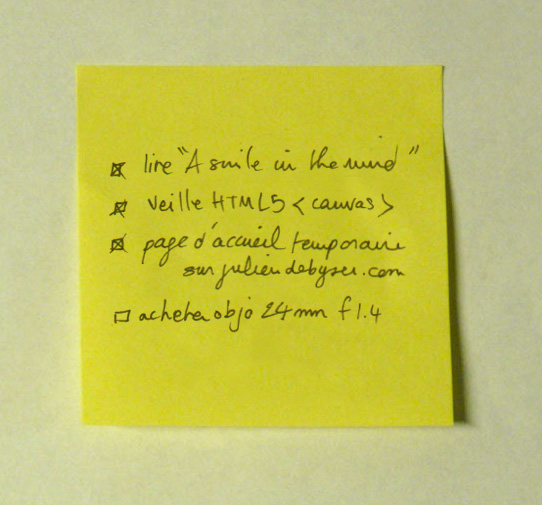 ☒ lire "A smile in the mind"
☒ veille HTML5 <canvas>
☒ page d'accueil temporaire
sur juliendebyser.com
☐ acheter objo 24mm f1.4